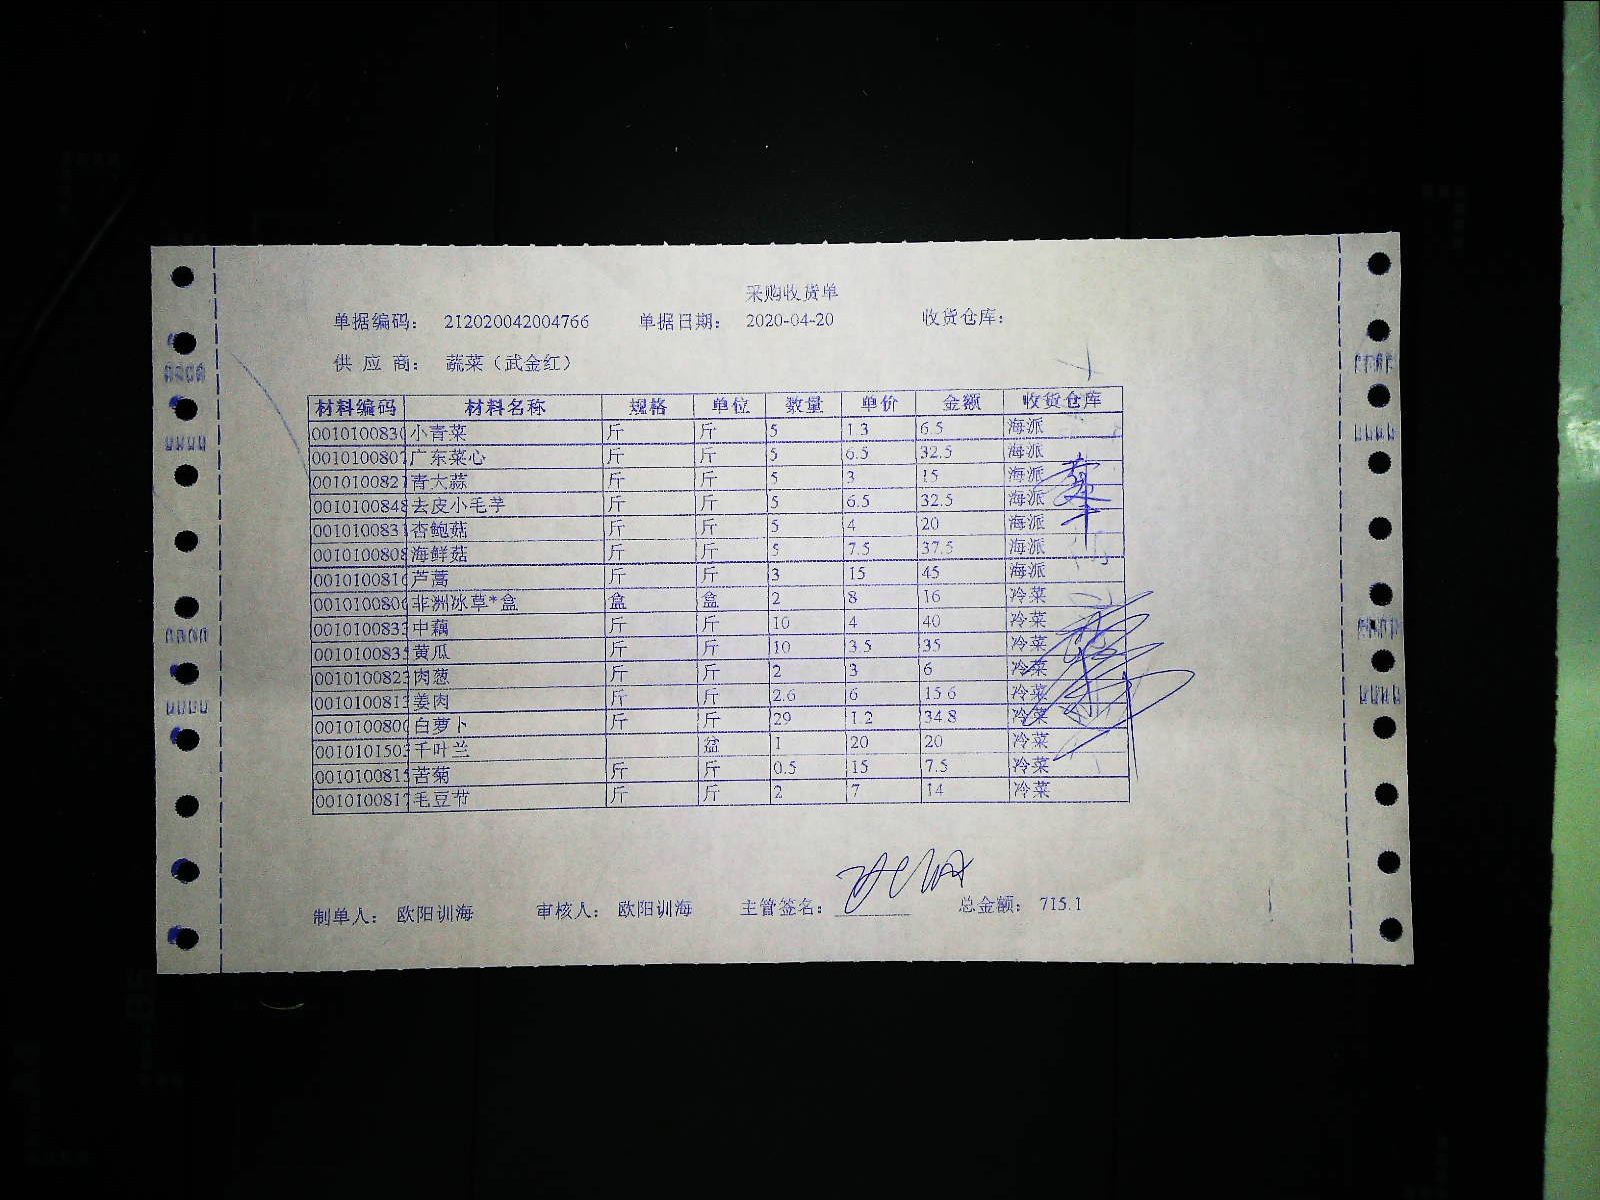 采购收货单
单据编码: 212020042004766 单据日期: 2020-04-20 收货仓库:
供 应 商: 蔬菜（武金红）
材料编码 材料名称 规格 单位 数量 单价 金额 收货仓库
0010100830 小青菜 斤 斤 5 1.3 6.5 海派
0010100807 广东菜心 斤 斤 5 6.5 32.5 海派
0010100821 青大蒜 斤 斤 5 3 15 海派
0010100848 去皮小毛芋 斤 斤 5 6.5 32.5 海派
0010100831 杏鲍菇 斤 斤 5 4 20 海派
0010100808 海鲜菇 斤 斤 5 7.5 37.5 海派
0010100816 芦蒿 斤 斤 3 15 45 海派
0010100806 非洲冰草*盒 盒 盒 2 8 16 冷菜
0010100833 中藕 斤 斤 10 4 40 冷菜
0010100835 黄瓜 斤 斤 10 3.5 35 冷菜
0010100823 肉葱 斤 斤 2 3 6 冷菜
0010100813 姜肉 斤 斤 2.6 6 15.6 冷菜
0010100800 白萝卜 斤 斤 29 1.2 34.8 冷菜
0010101503 千叶兰 盆 1 20 20 冷菜
0010100815 苦菊 斤 斤 0.5 15 7.5 冷菜
0010100817 毛豆节 斤 斤 2 7 14 冷菜
制单人: 欧阳训海 审核人: 欧阳训海 主管签名: 总金额: 715.1